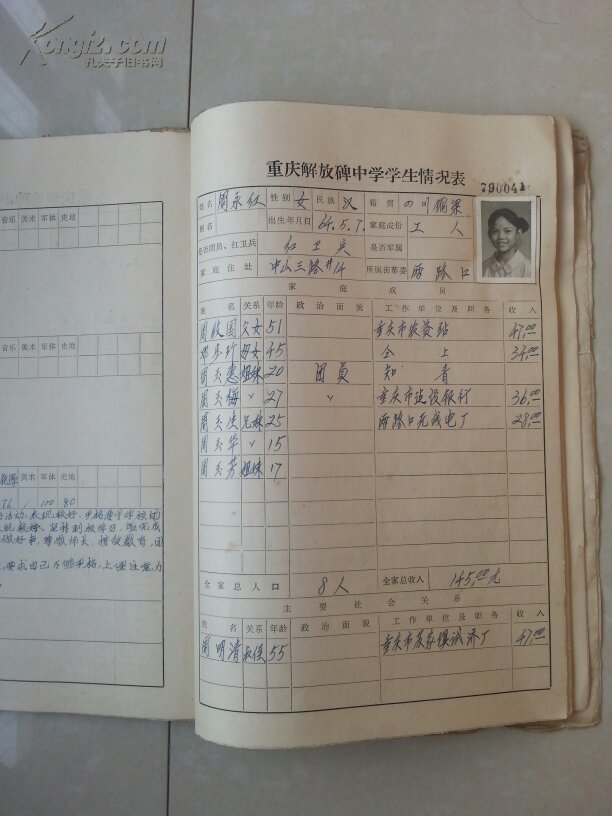 Kongfz.com
孔夫子旧书网
重庆解放碑中学学生情况表
790041
姓名 周永红 性别 女 民族 汉 籍贯 四川铜梁
别名 出生年月日 64.5.7. 家庭成份 工人
是否团员、红卫兵 红卫兵 是否军属
家庭住址 中山三路#14 所属街革委 两路口
家庭成员
姓名 关系 年龄 政治面貌 工作单位及职务 收入
周 国 父女 51 重庆市农资站 47.00
邓 珍 母女 45 仝上 34.00
周 惠 姐妹 20 团员 知青
周 梅 〃 27 〃 重庆市建设银行 36.00
周 兄妹 25 两路口无线电厂 28.00
周 华 〃 15
周 芳 姐妹 17
全家总人口 8人 全家总收入 145.00元
主要社会关系
姓名 关系 年龄 政治面貌 工作单位及职务 收入
周明清 叔侄 55 重庆市 厂 47.00
音乐 美术 军体 史地
音乐 美术 军体 史地
美术 军体 史地
76 / 100 80
活动,表现较好,
做好事,尊敬师长,接受教育,团
要求自己不够严格,上课注意力